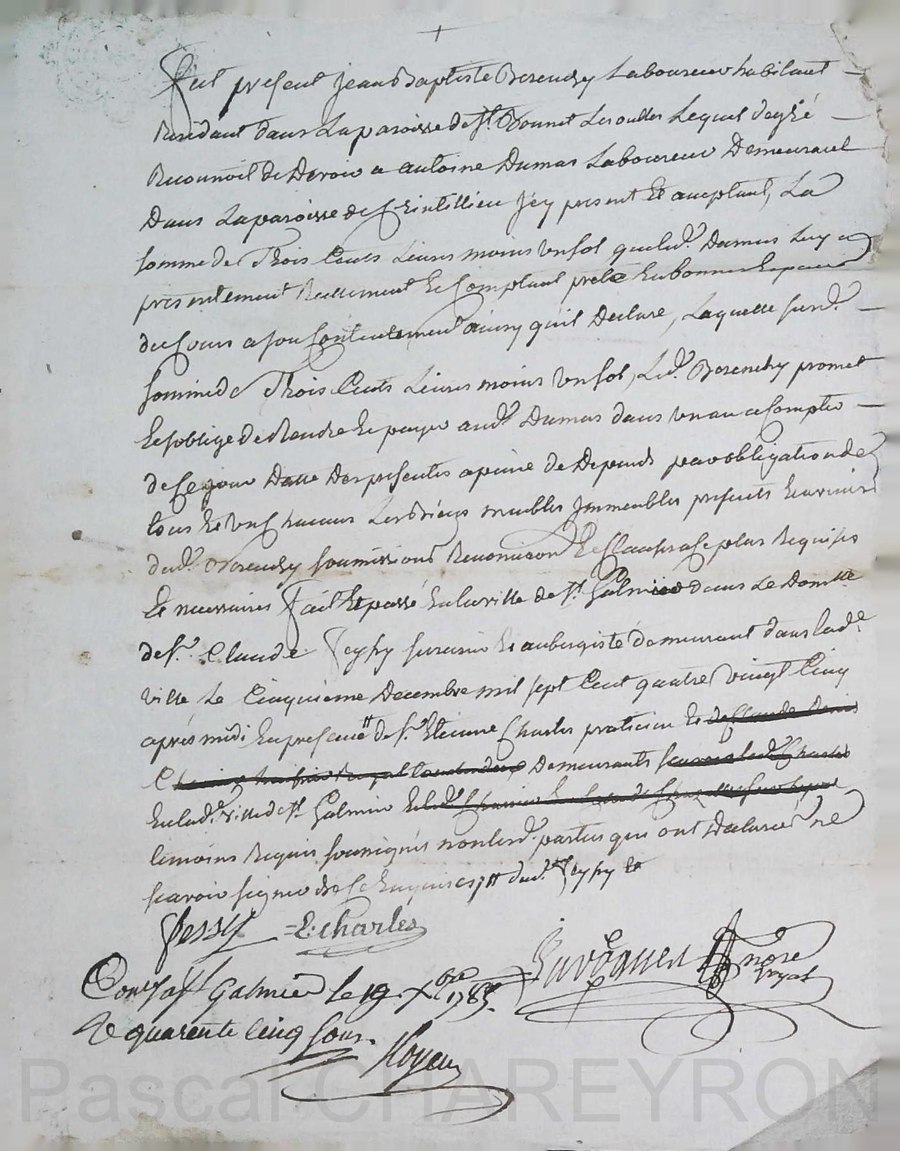 Fut présent Jean Baptiste Berenchy Laboureur habitant
Résidant dans La paroisse de St. Bonnet Les oulles Lequel de gré
Reconnoit de Devoir a antoine Dumas Laboureur Demeurant
Dans La paroisse de present Et aceptant, La
somme de Trois Cents Livres moins Un sol que led. Dumas Luy a
presentement Reellement Et Comptant prété En bonnes Especes
de Cours a son Contentement ainsy qu'il Declare, Laquelle susd.
somme de Trois Cents Livres moins Un sol, Led. Berenchy promet
Et soblige de Rendre Et payer aud. Dumas dans Un an a Compter
de Ce jour Datte Des présentes a peine de Depends par obligation de
tous Et Un Chacuns Ses Biens meubles Immeubles présents Et avenir
dud. Berenchy soumissions Renonciaon Et Clauses a Ce plus Requises
Et necessaires Fait Et passé En la ville de St. Galmier dans Le Domille
de Sr. Claude Et aubergiste demeurant dans lad.
ville Le Cinquieme Decembre mil sept Cent quatre Vingt Cinq
après midi En présence de Sr. Etienne Charles praticien
Demeurants
En lad. Ville de St. Galmier
temoins Requis soussignés non lesd. parties qui ont Declaré ne
scavoir signer de Ce Enquis
E. charles
nore royal
Con. a St. Galmier le 19. Xbre 1785.
R quarente cinq sous.